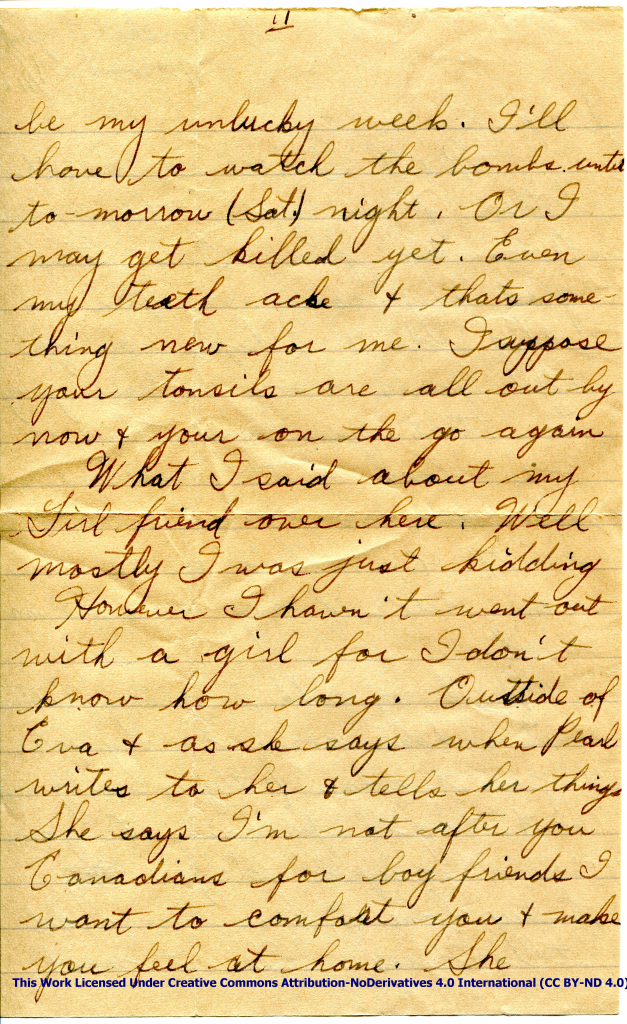 11
be my unlucky week. I'll
have to watch the bombs. until
to-morrow (Sat.) night. Or I
may get killed yet. Even
my teeth ache & thats some-
thing new for me. I suppose
your tonsils are all out by
now & your on the go again
What I said about my
Girl friend over here. Well
mostly I was just kidding
However I havn't went out
with a girl for I don't
know how long. Outside of
Eva & as she says when Pearl
writes to her & tells her things
She says I'm not after you
Canadians for boy friends I
want to comfort you & make
you feel at home. She
This Work Licensed Under Creative Commons Attribution-NoDerivatives 4.0 International (CC BY-ND 4.0)